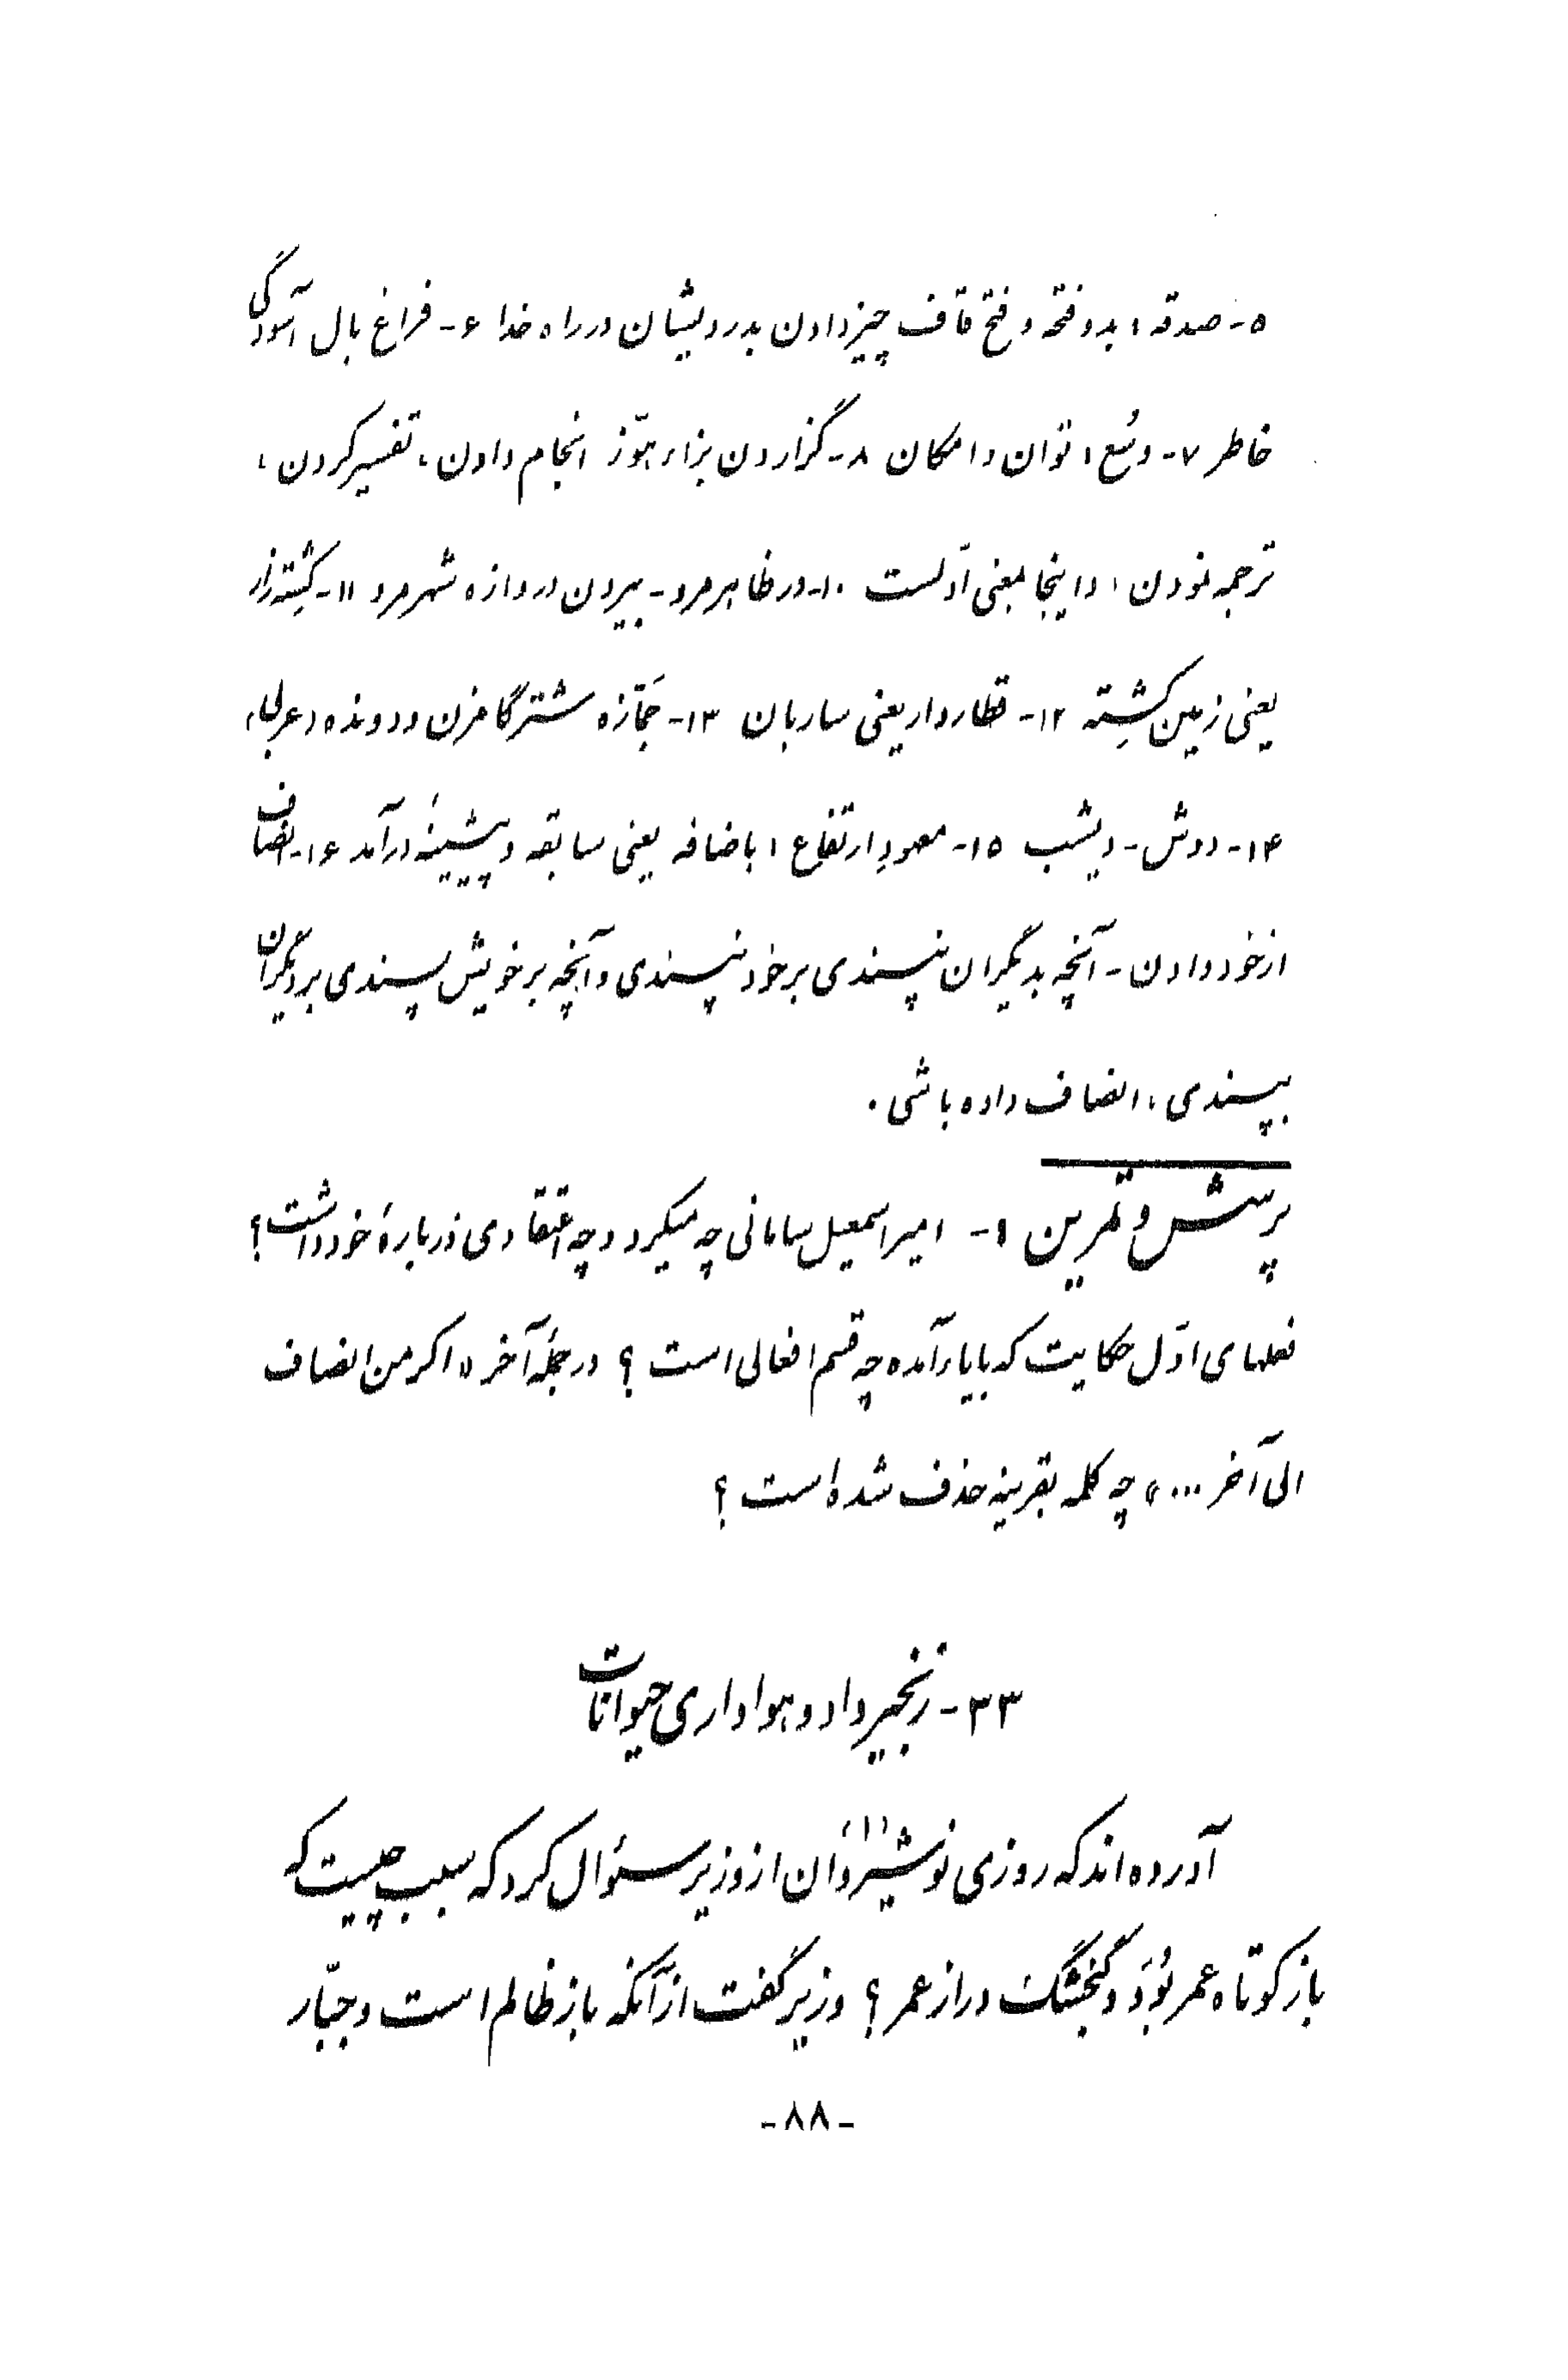 ۵- صدقه، بدو فتحه و فتح قاف چیز دادن بدرویشان در راه خدا ۶- فراغ بال آسودگی
خاطر ۷- وُسع، توان و امکان ۸- گزاردن بزاء هوّز انجام دادن، تفسیر کردن،
ترجمه نمودن، و اینجا بمعنی اوّلست ۱۰- در ظاهر مرو - بیرون دروازه شهر مرو ۱۱- کشته‌زار
یعنی زمین کِشته ۱۲- قطاردار یعنی ساربان ۱۳- جَمّازه شتر گامزن و دونده (عربی)
۱۴- دوش - دیشب ۱۵- معهودِ ارتفاع، باضافه یعنی سابقه و پیشینهٔ درآمد ۱۶- انصاف
از خود دادن - آنچه بدیگران نپسندی بر خود نپسندی و آنچه بر خویش پسندی بر دیگران
بپسندی، انصاف داده باشی.
پرسش و تمرین ۱- امیر اسمعیل سامانی چه میکرد و چه اعتقادی دربارهٔ خود داشت؟
فعلهای اوّل حکایت که با یاء آمده چه قسم افعالی است؟ در جملهٔ آخر «اگر من انصاف
الی آخر ...» چه کلمه بقرینه حذف شده است؟
۳۳- زنجیر داد و هواداری حیوانات
آورده‌اند که روزی نوشیروان (۱) از وزیر سئوال کرد که سبب چیست که
باز کوتاه عمر بُوَد و گنجشگ دراز عمر؟ وزیر گفت از آنکه باز ظالم است و جبّار
-۸۸-